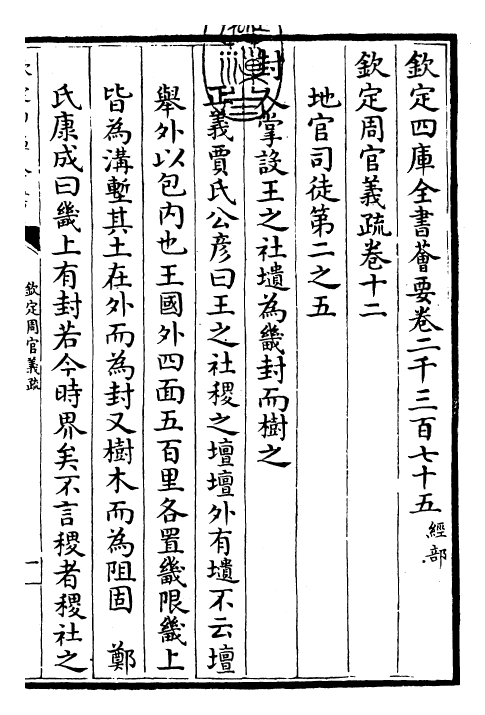 欽定四庫全書薈要卷二千三百七十五 經部
欽定周官義疏卷十二
地官司徒第二之五
封人掌設王之社壝為畿封而樹之
正義賈氏公彦曰王之社稷之壇壇外有壝不云壇
舉外以包内也王國外四面五百里各置畿限畿上
皆為溝塹其土在外而為封又樹木而為阻固 鄭
氏康成曰畿上有封若今時界矣不言稷者稷社之
欽定周官義疏
一